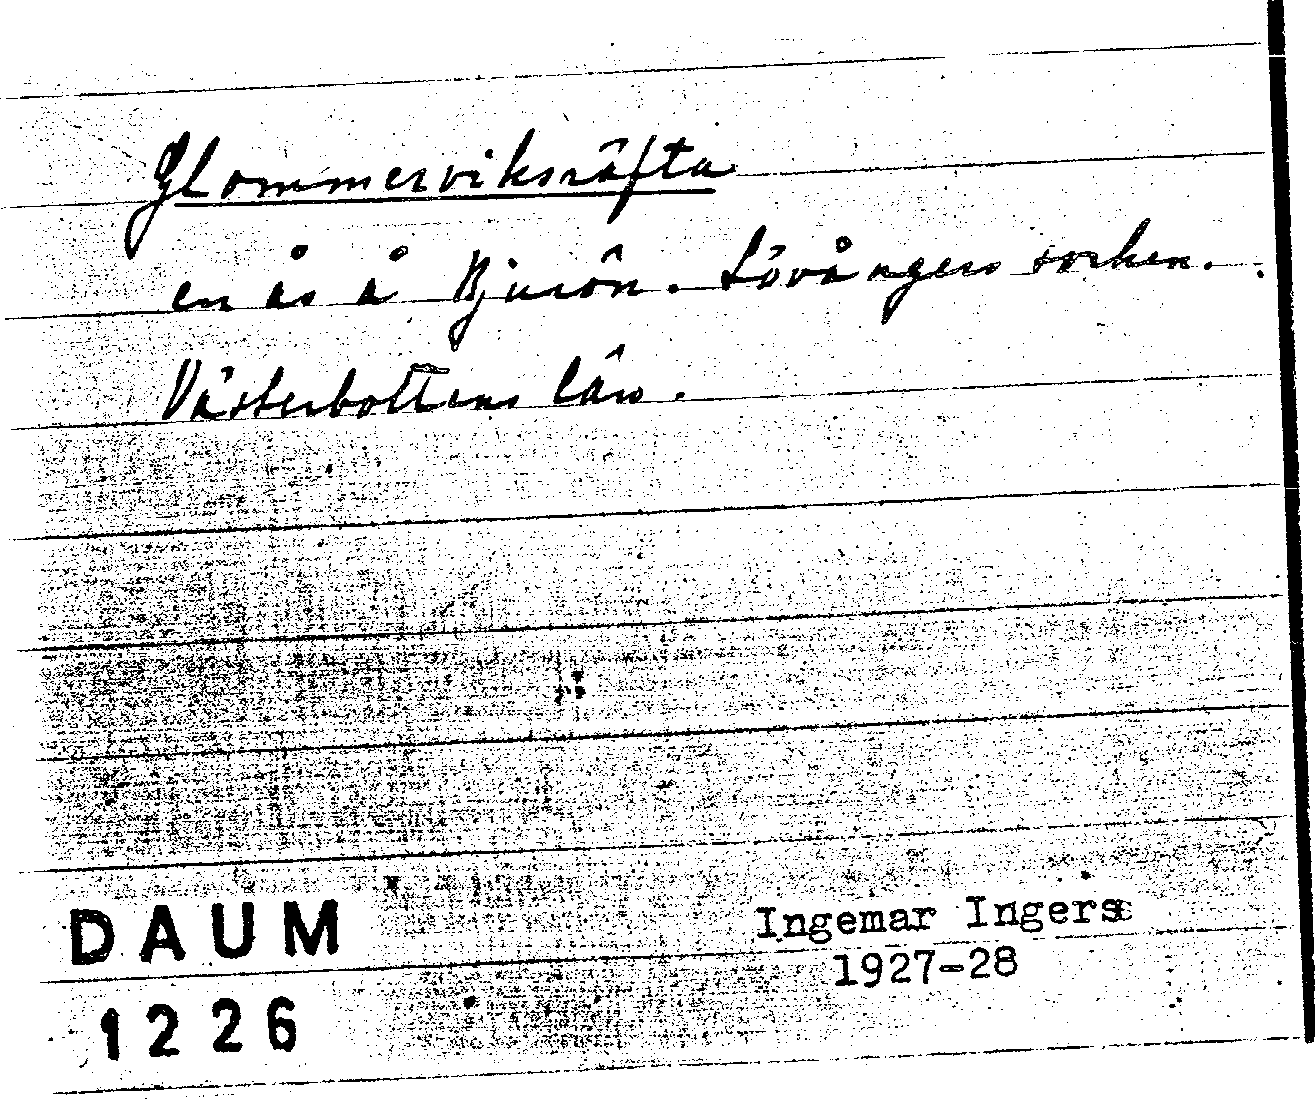 Glommerviksräfta
en ås å Bjurön. Lövångers socken.
Västerbottens län.
DAUM
1226
Ingemar Ingers
1927-28